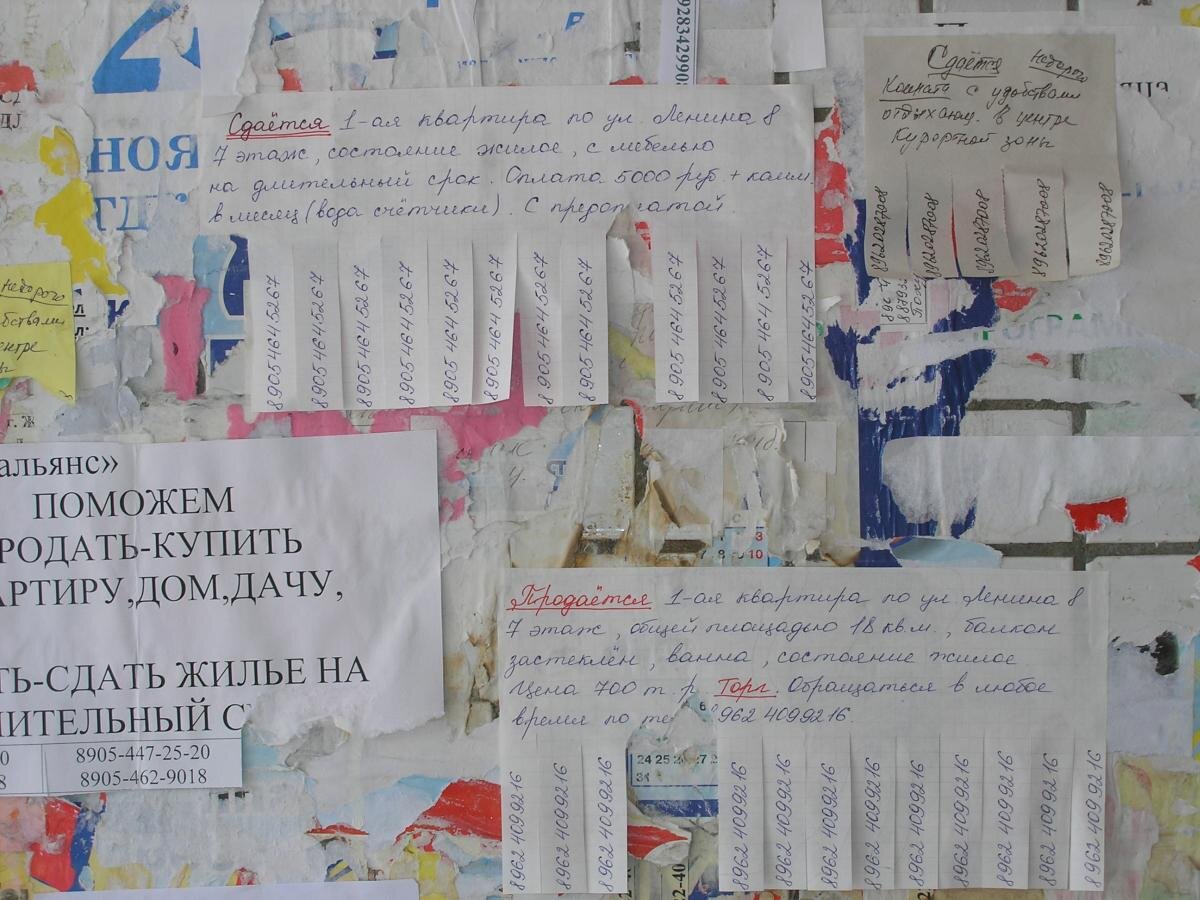 928342990
Сдаётся 1-ая квартира по ул. Ленина 8
7 этаж, состояние жилое, с мебелью
на длительный срок. Оплата 5000 руб + комм.
в месяц (вода счётчики). С предоплатой
8905 464 5267
8905 464 5267
8905 464 5267
8905 464 5267
8905 464 5267
8905 464 5267
8905 464 5267
8905 464 5267
8905 464 5267
8905 464 5267
8905 464 5267
8905 464 5267
Сдаётся недорого
Комната с удобствами
отдыхающ. в центре
Курортной зоны
89620287008
89620287008
89620287008
89620287008
89620287008
НОЯ
недорого
бствами
ентре
альянс»
ПОМОЖЕМ
РОДАТЬ-КУПИТЬ
АРТИРУ,ДОМ,ДАЧУ,
ТЬ-СДАТЬ ЖИЛЬЕ НА
ИТЕЛЬНЫЙ С
0 8905-447-25-20
8 8905-462-9018
3
7 8 9 10
Продаётся 1-ая квартира по ул. Ленина 8
7 этаж, общей площадью 18 кв.м., балкон
застеклён, ванна, состояние жилое.
Цена 700 т. р. Торг. Обращаться в любое
время по те 962 4099216.
24 25 27
31
8962 4099216
8962 4099216
8962 4099216
8962 4099216
8962 4099216
8962 4099216
8962 4099216
8962 4099216
8962 4099216
8962 4099216
8962 4099216
8962 4099216
22-40